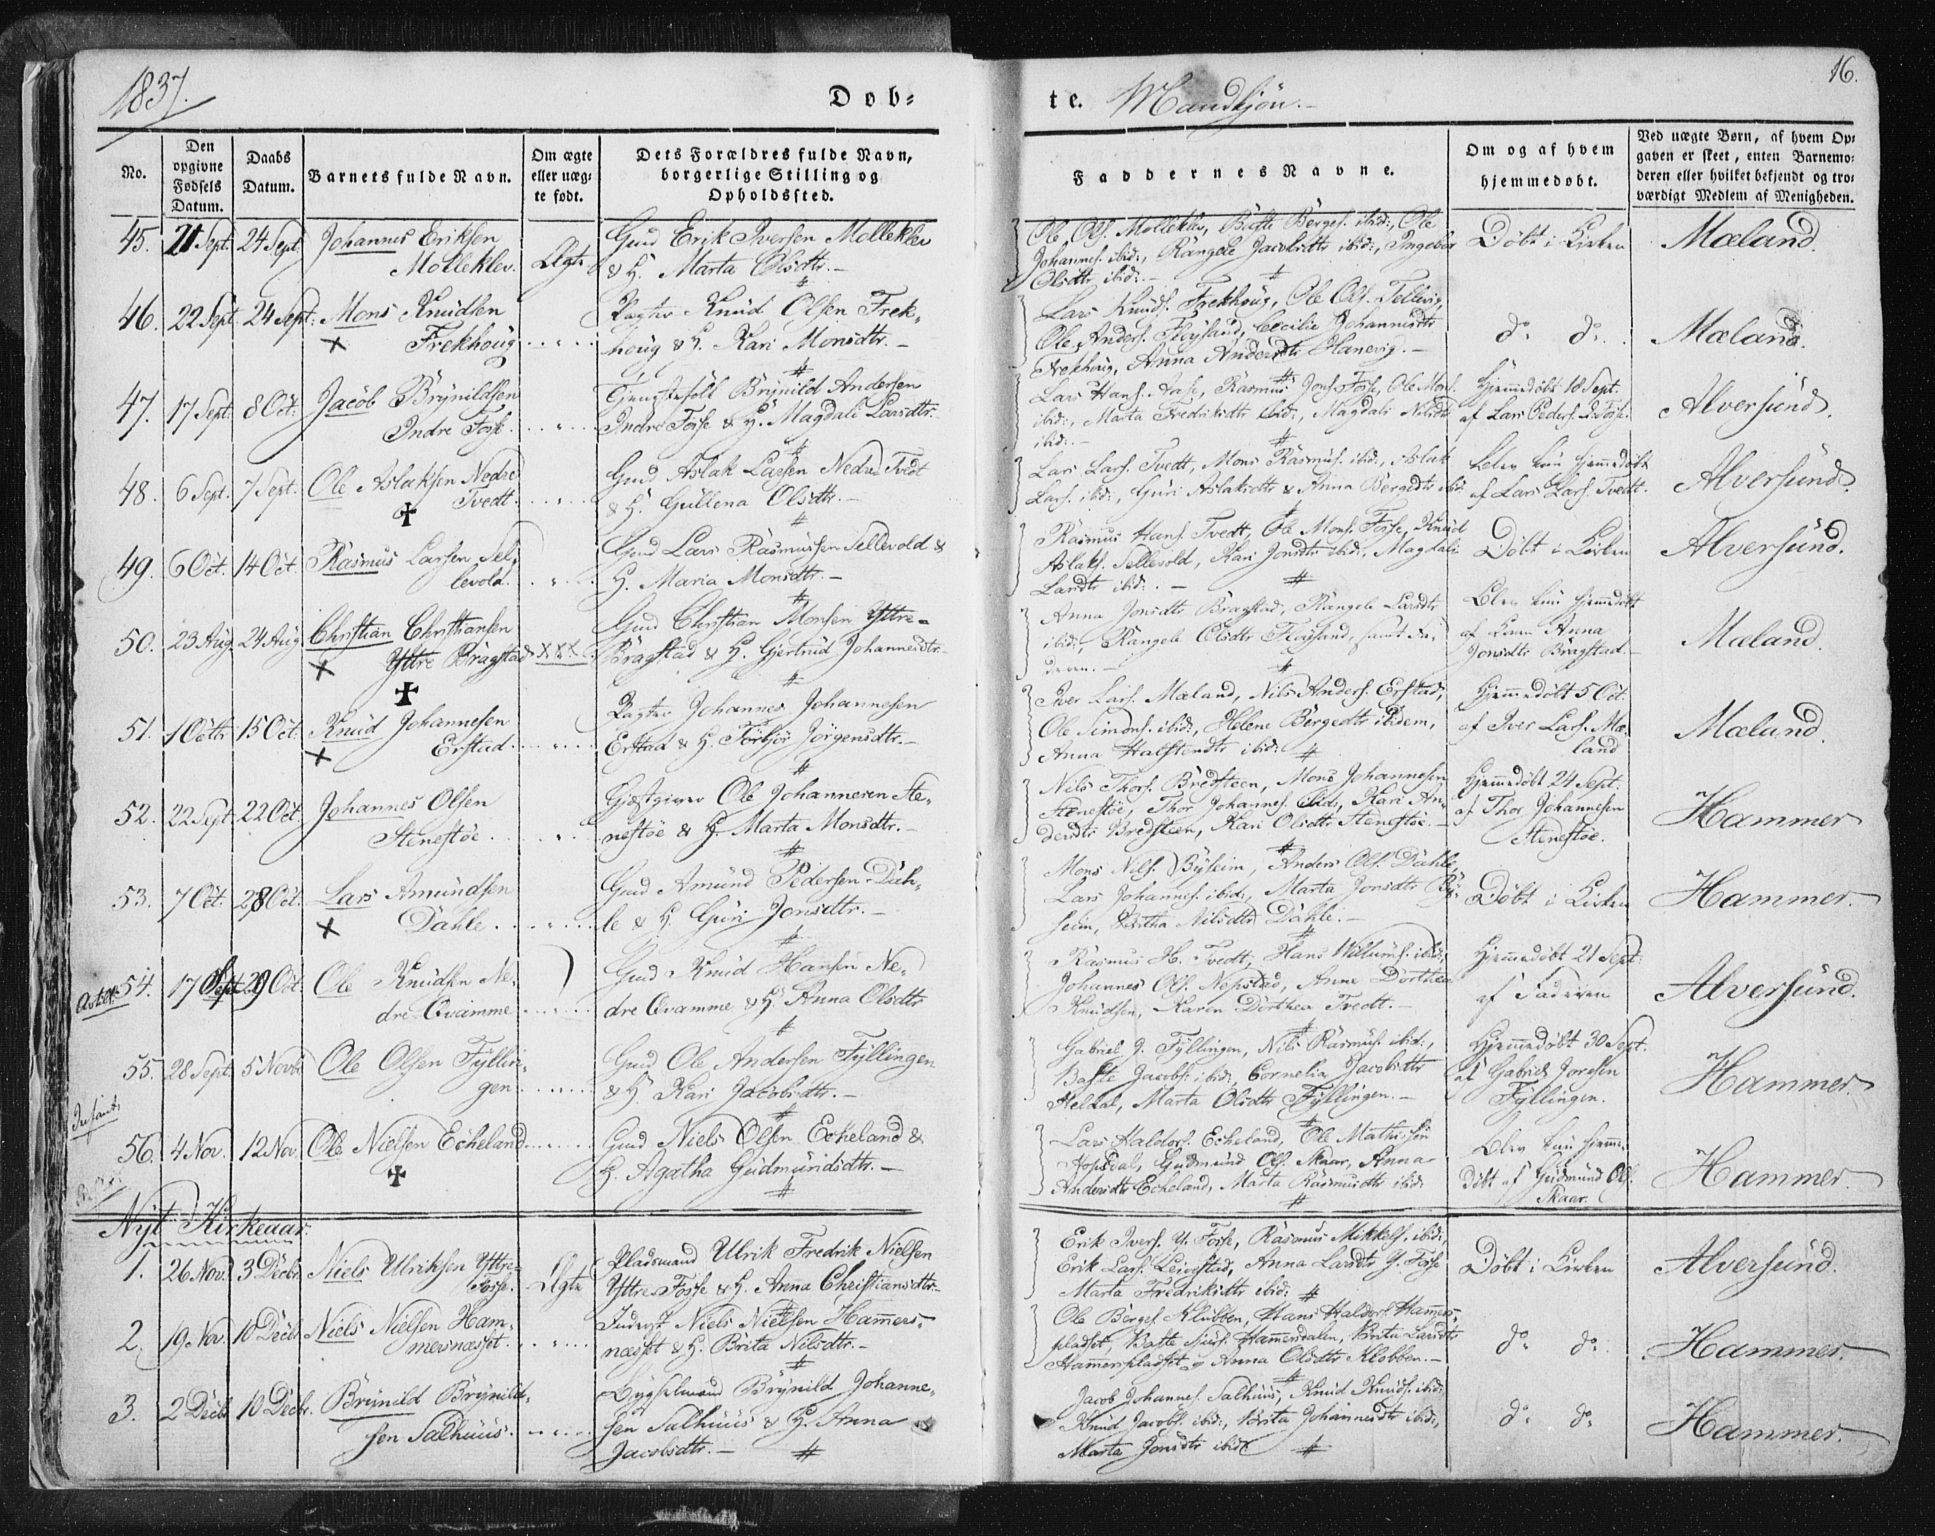 1837.
Døb=
te. Mandkjön.
16.
No.
Den opgivne Fødsels Datum.
Daabs Datum.
Barnets fulde Navn.
Om ægte eller uægte født.
Dets Forældres fulde Navn, borgerlige Stilling og Opholdssted.
Faddernes Navne.
Om og af hvem hjemmedøbt.
Ved uægte Børn, af hvem Opgaven er skeet, enten Barnemoderen eller hvilket bekjendt og troværdigt Medlem af Menigheden.
45. 21 Sept. 24 Sept. Johannes Eriksen
Mølleklev. Ægte
Gmd Erik Iversen Mølleklev
& H. Marta Olsdtr. –
Ole Ols. Mølleklev, Børges. ibid:, Ole
Johannes. ibid:, Rangele Jacobsdtr ibid:, Ingebor
Olsdtr ibid: –
Döbt i Kirken
Mæland.
46. 22 Sept. 24 Sept: Mons Knudsen
Frekhoug
Knud Olsen Frek-
houg & H. Kari Monsdtr. –
Lars Knuds. Frekhoug, Ole Ols. Tellevig
Ole Anders. Floisand, Cecilia Johannesdtr
Frekhoug, Anna Andersdtr Hanevig. –
do do.
Mæland.
47. 17 Sept. 8 Oct. Jacob Brynildsen
Indre Fosse.
Brynild Andersen
Indre Fosse & H. Magdali Larsdtr.
Lars Hans. Aase, Rasmus Jons. Fosse, Ole Mons.
ibid:, Marta Fredriksdtr ibid:, Magdali Nilsdtr
ibid: –
Hjemmedöbt 18 Sept.
af Lars Peders. I. Fosse.
Alversund.
48. 6 Sept. 7 Sept. Ole Aslaksen Nedre
Tvedt.
Gmd Aslak Larsen Nedre Tvedt
& H. Gullena Olsdtr. –
Lars Lars. Tvedt, Mons Rasmus. ibid:, Aslak
Lars. ibid:, Guri Aslaksdtr & Anna Børgesdtr ibid.
blev kun hjemmedöbt
af Lars Lars. Tvedt.
Alversund.
49. 6 Oct. 14 Oct. Rasmus Larsen Sel-
levold.
Gmd Lars Rasmussen Sellevold &
H. Maria Monsdtr. –
Rasmus Hans. Tvedt, Ole Mons. Fosse, Knud
Aslaks. Sellevold, Kari Jonsdtr ibid:, Magdali
Larsdtr ibid: –
Döbt i Kirken
Alversund.
50. 23 Aug. 24 Aug Christian Christiansen
Yttre Bragstad
Gmd Christian Monsen Yttre-
Bragstad & H. Gjertrud Johannesdtr –
Anna Jonsdtr Bragstad, Rangele Larsdtr
ibid:, Rangele Olsdtr Floisand, samt Fa-
deren. –
Blev kun hjemmedöbt
af Anna
Jonsdtr Bragstad. –
Mæland.
51. 1 Octb. 15 Oct. Knud Johannesen
Erstad.
Johannes Johannesen
Erstad & H. Torbjör Jörgensdtr. –
Iver Lars. Mæland, Nils Anders. Erstad,
Ole Simons. ibid:, Helene Børgesdtr ibidem,
Anna Halstendtr ibid:
Hjemmedöbt 5 Oct.
af Iver Lars. Mæ-
land
Mæland.
52. 22 Sept. 22 Oct. Johannes Olsen
Stenestöe
Gjæstgiver Ole Johannesen Ste-
nestöe & H. Marta Monsdtr. –
Nils Thors. Bredsteen, Mons Johannesen
Stenestöe, Thor Johannes. ibid:, Kari An-
dersdtr Bredsteen, Kari Olsdtr Stenestöe. –
Hjemmedöbt 24 Sept.
af Thor Johannesen
Stenestöe.
Hammer
53. 7 Oct. 28 Oct. Lars Amundsen
Dahle.
Gmd Amund Pedersen Dah-
le & H. Guri Jonsdtr. –
Mons Nels. Byheim, Anders Ols. Dahle,
Lars Johannes. ibid:, Marta Jonsdtr By-
heim, Britha Nilsdtr Dahle. –
Döbt i Kirken
Hammer.
54. 17 Sept. 29 Oct. Ole Knudsen Ne-
dre Qvamme
Gmd Knud Hansen Ne-
dre Qvamme & H. Anna Olsdtr
Rasmus H. Tvedt, Hans Willums. ibid:,
Johannes Ols. Nepstad, Anne Dorthea
Knudsen, Karen Dorthea Tvedt. –
Hjemmedöbt 21 Sept:
af Faderen
Alversund.
55. 28 Sept. 5 Novb: Ole Olsen Fyllin-
gen
Gmd Ole Andersen Fyllingen
& H. Kari Jacobsdtr. –
Gabriel J. Fyllingen, Nils Rasmus. ibid:,
Baste Jacobs. ibid:, Cornelia Jacobsdtr
Heldal, Marta Olsdtr Fyllingen. –
Hjemmedöbt 30 Sept.
af Gabriel Joresen
Fyllingen.
Hammer
56. 4 Nov. 12 Nov. Ole Nielsen Echeland
Gmd Niels Olsen Echeland &
H. Agatha Gudmundsdtr. –
Lars Haldors. Echeland, Ole Mathisen
Hopsdal, Gudmund Ols. Skaar, Anna
Andersdtr Echeland, Marta Rasmusdtr ibid:
Blev kun hjemme-
döbt af Gudmund Ols.
Skaar.
Hammer.
Nyt Kirkeaar.
1. 26 Nov. 3 Decbr. Niels Ulriksen Yttre-
Fosse. Ægte
Pladsmand Ulrik Fredrik Nielsen
Yttre Fosse & H. Anna Christiansdtr. –
Erik Ivers. Y. Fosse, Rasmus Mikkels. ibid:,
Erik Lars. Leirestad, Anna Larsdtr Y. Fosse
Marta Fredriksdtr ibid:
Döbt i Kirken
Alversund.
2. 19 Nov. 10 Decbr Niels Nielsen Ham-
mersnæsset.
Inderst Niels Nielsen Hammers-
næsset & H. Brita Nilsdtr. –
Ole Børges. Klubben, Hans Haldors. Hammers-
pladset, Baste Hammersdalen, Brita Larsdtr
Hammerspladset, Anna Olsdtr Klobben. –
do do.
Hammer.
3. 2 Decbr 10 Decbr. Brynild Brynild-
sen Salhuus.
Bygselmand Brynild Johanne-
sen Salhuus & H. Anna
Jacobsdtr. –
Jacob Johannes. Salhuus, Knud Knuds. ibid:,
Knud Jacobs. ibid:, Brita Johannesdtr ibid:,
Marta Jonsdtr ibid:
do do
Hammer.